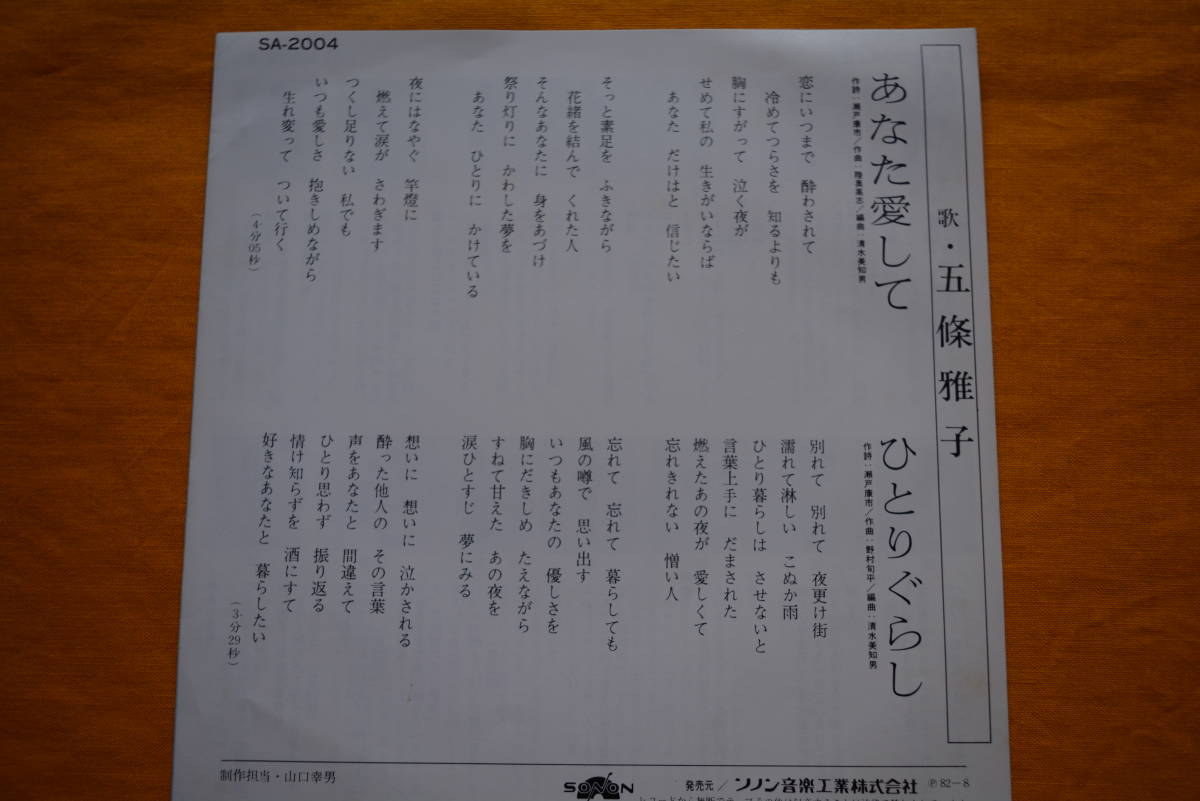 SA-2004
歌・五條雅子
あなた愛して
作詩：瀬戸康市／作曲：陸奥高志／編曲：清水美知男
恋にいつまで 酔わされて
冷めてつらさを 知るよりも
胸にすがって 泣く夜が
せめて私の 生きがいならば
あなた だけはと 信じたい
そっと素足を ふきながら
花緒を結んで くれた人
そんなあなたに 身をあづけ
祭り灯りに かわした夢を
あなた ひとりに かけている
夜にはなやぐ 竿燈に
燃えて涙が さわぎます
つくし足りない 私でも
いつも愛しさ 抱きしめながら
生れ変って ついて行く
（4分05秒）
ひとりぐらし
作詩：瀬戸康市／作曲：野村旬平／編曲：清水美知男
別れて 別れて 夜更け街
濡れて淋しい こぬか雨
ひとり暮らしは させないと
言葉上手に だまされた
燃えたあの夜が 愛しくて
忘れきれない 憎い人
忘れて 忘れて 暮らしても
風の噂で 思い出す
いつもあなたの 優しさを
胸にだきしめ たえながら
すねて甘えた あの夜を
涙ひとすじ 夢にみる
想いに 想いに 泣かされる
酔った他人の その言葉
声をあなたと 間違えて
ひとり思わず 振り返る
情け知らずを 酒にすて
好きなあなたと 暮らしたい
（3分29秒）
制作担当・山口幸男
SONON
発売元／ソノン音楽工業株式会社 Ⓟ82-8